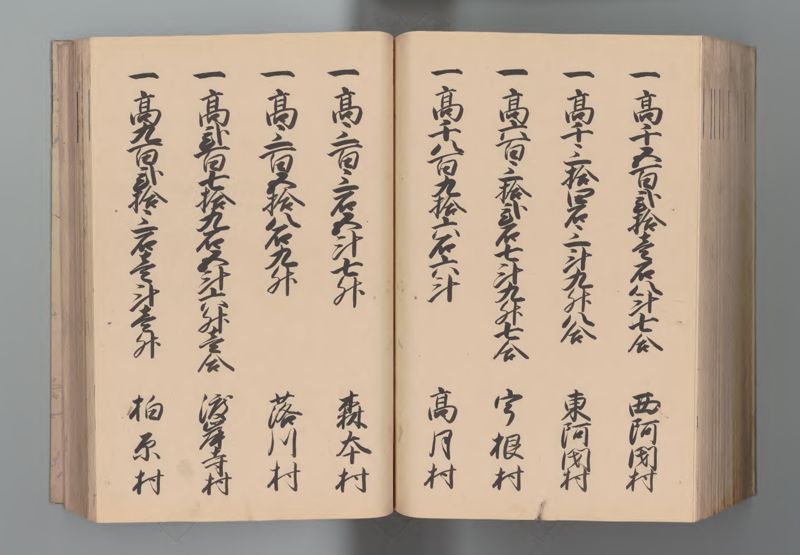 一高千五百弐拾壱石八斗七合 西阿閉村
一高千三拾四石三斗九升八合 東阿閉村
一高六百三拾弐石七斗九升七合 宇根村
一高千八百九拾六石六斗 高月村
一高三百三石五斗七升 森本村
一高三百五拾八石九升 落川村
一高弐百七拾九石五斗六升壱合 渡岸寺村
一高九百弐拾三石壱斗壱升 柏原村